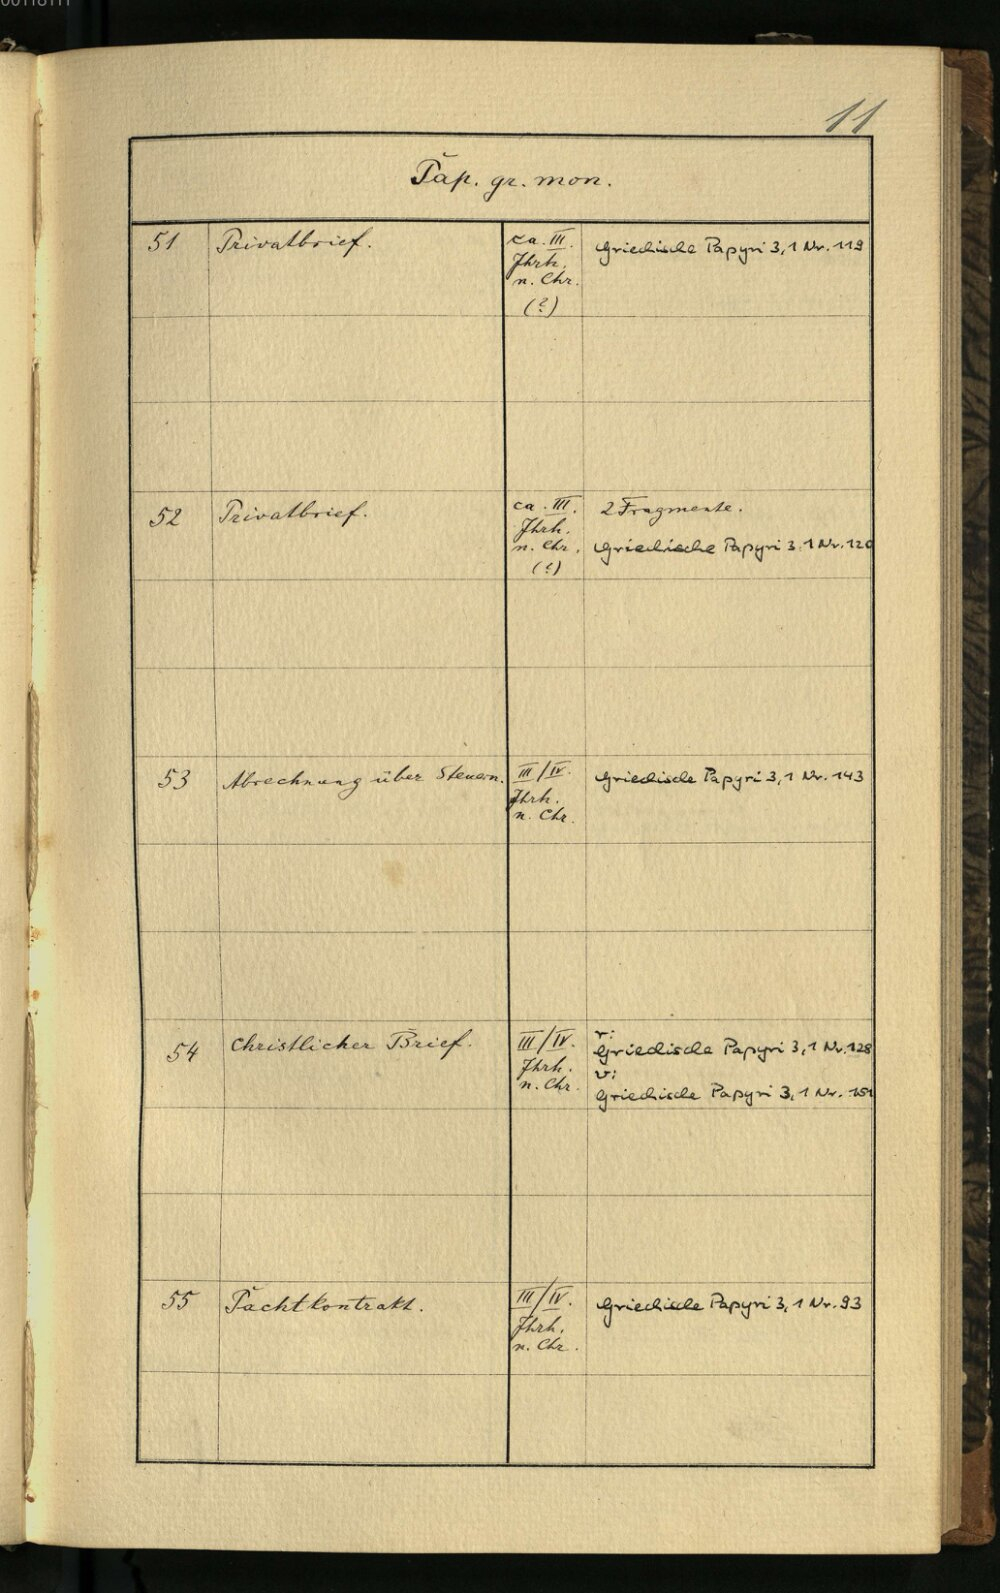 00118111
11
Pap. gr. mon.
51 Privatbrief. ca. III. Griechische Papyri 3,1 Nr. 119
Jhrh.
n. Chr.
(?)
52 Privatbrief. ca. III. 2 Fragmente.
Jhrh.
n. Chr. Griechische Papyri 3,1 Nr. 120
(?)
53 Abrechnung über Steuern. III/IV. Griechische Papyri 3,1 Nr. 143
Jhrh.
n. Chr.
54 Christlicher Brief. III/IV. r:
Jhrh. Griechische Papyri 3,1 Nr. 128
n. Chr. v:
Griechische Papyri 3,1 Nr. 151
55 Pachtkontrakt. III/IV. Griechische Papyri 3,1 Nr. 93
Jhrh.
n. Chr.